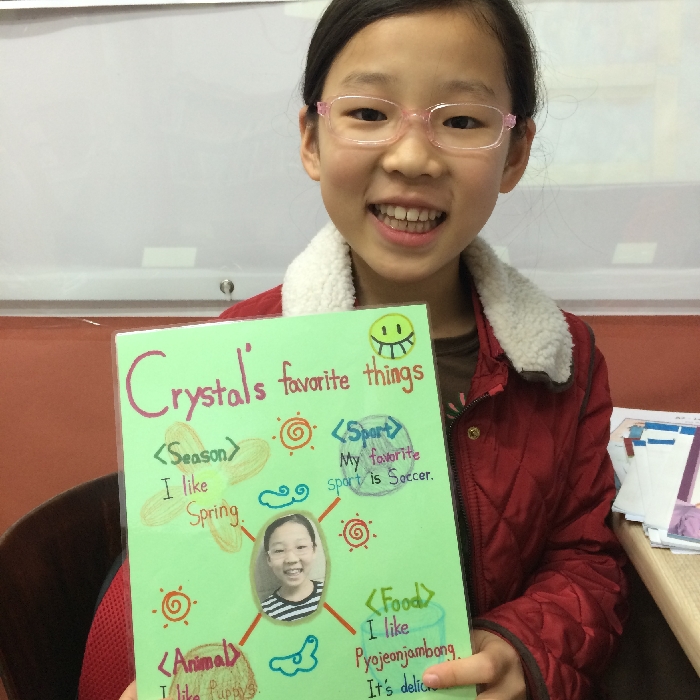 Crystal's favorite things
<Season>
I like
Spring.
<Sport>
My favorite
sport is Soccer.
<Animal>
I like
<Food>
I like
Pyojeonjambong.
It's